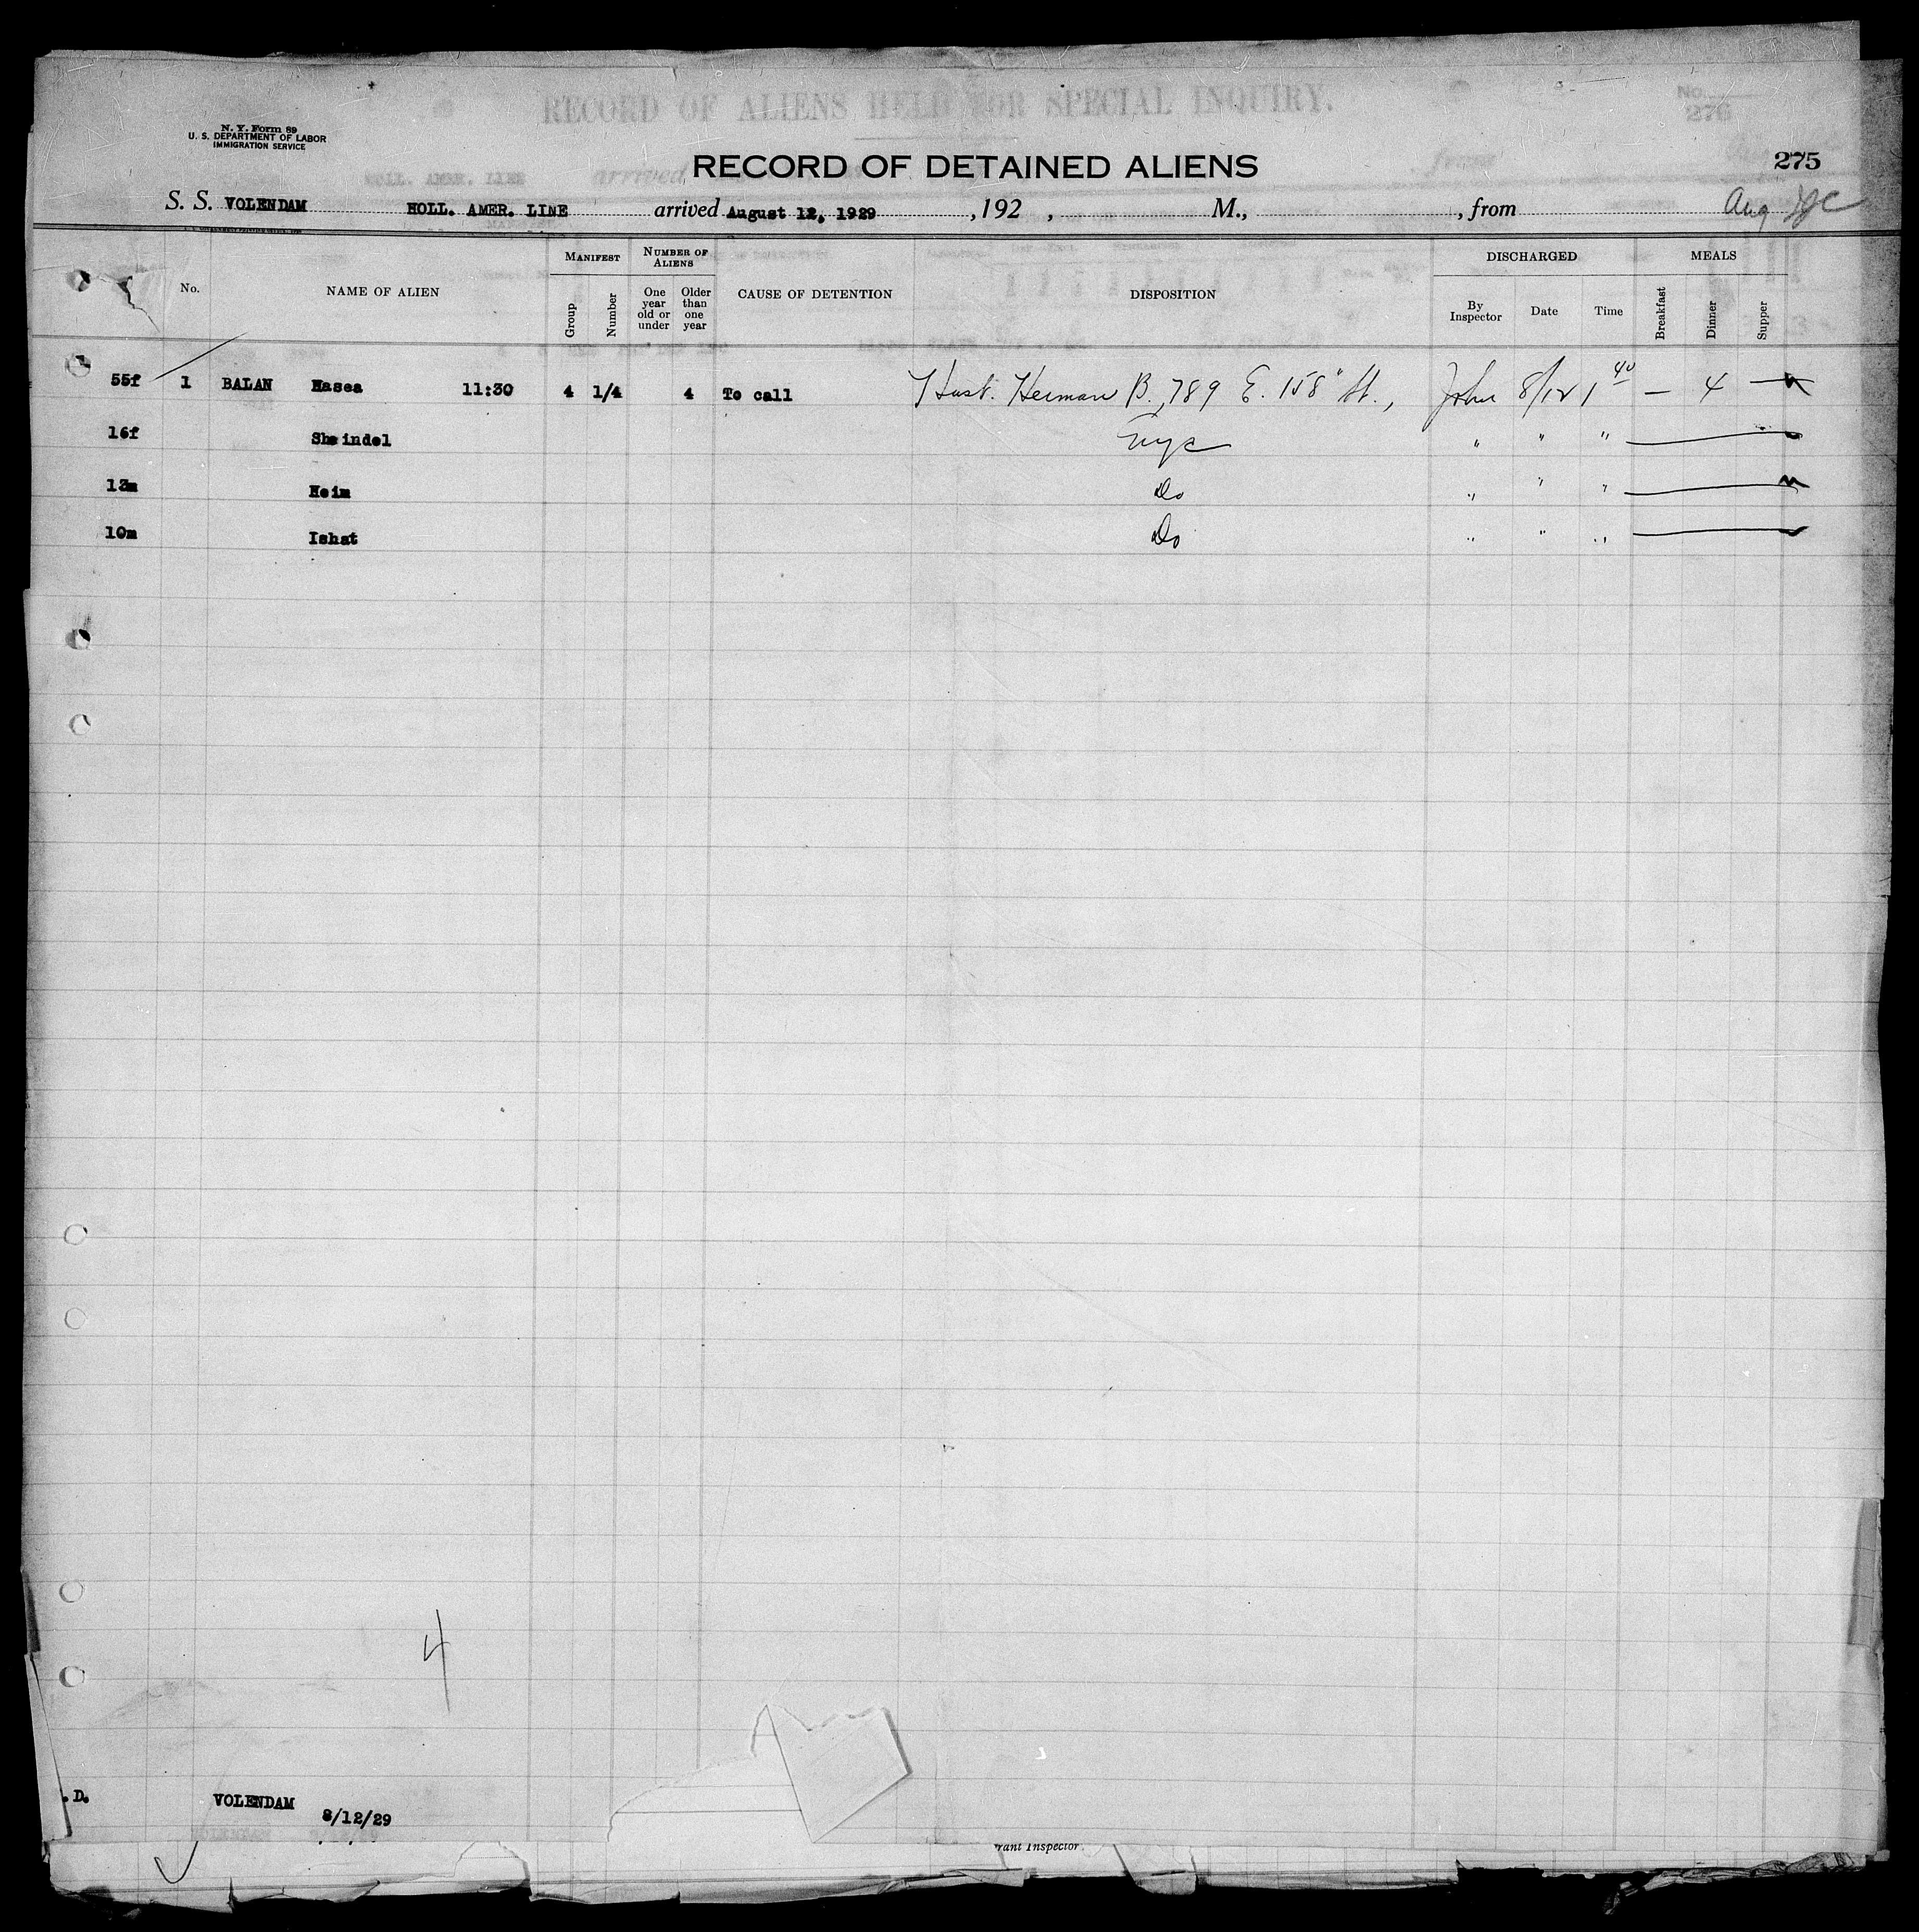 RECORD OF ALIENS HELD FOR SPECIAL INQUIRY.
No.
276
N. Y. Form 89
U. S. DEPARTMENT OF LABOR
IMMIGRATION SERVICE
RECORD OF DETAINED ALIENS
275
S. S. VOLENDAM HOLL. AMER. LINE arrived August 12, 1929 , 192 , M., , from Aug
No. NAME OF ALIEN MANIFEST Group Number NUMBER OF ALIENS One year old or under Older than one year CAUSE OF DETENTION DISPOSITION DISCHARGED By Inspector Date Time MEALS Breakfast Dinner Supper
55f 1 BALAN Hasea 11:30 4 1/4 4 To call Husb. Herman B., 789 E. 158" St., John 8/12 1 40 — 4 —
16f Sheindel NYC " " "
13m Heim Do " " "
10m Ishat Do " " "
4
.D. VOLENDAM 8/12/29
rant Inspector.